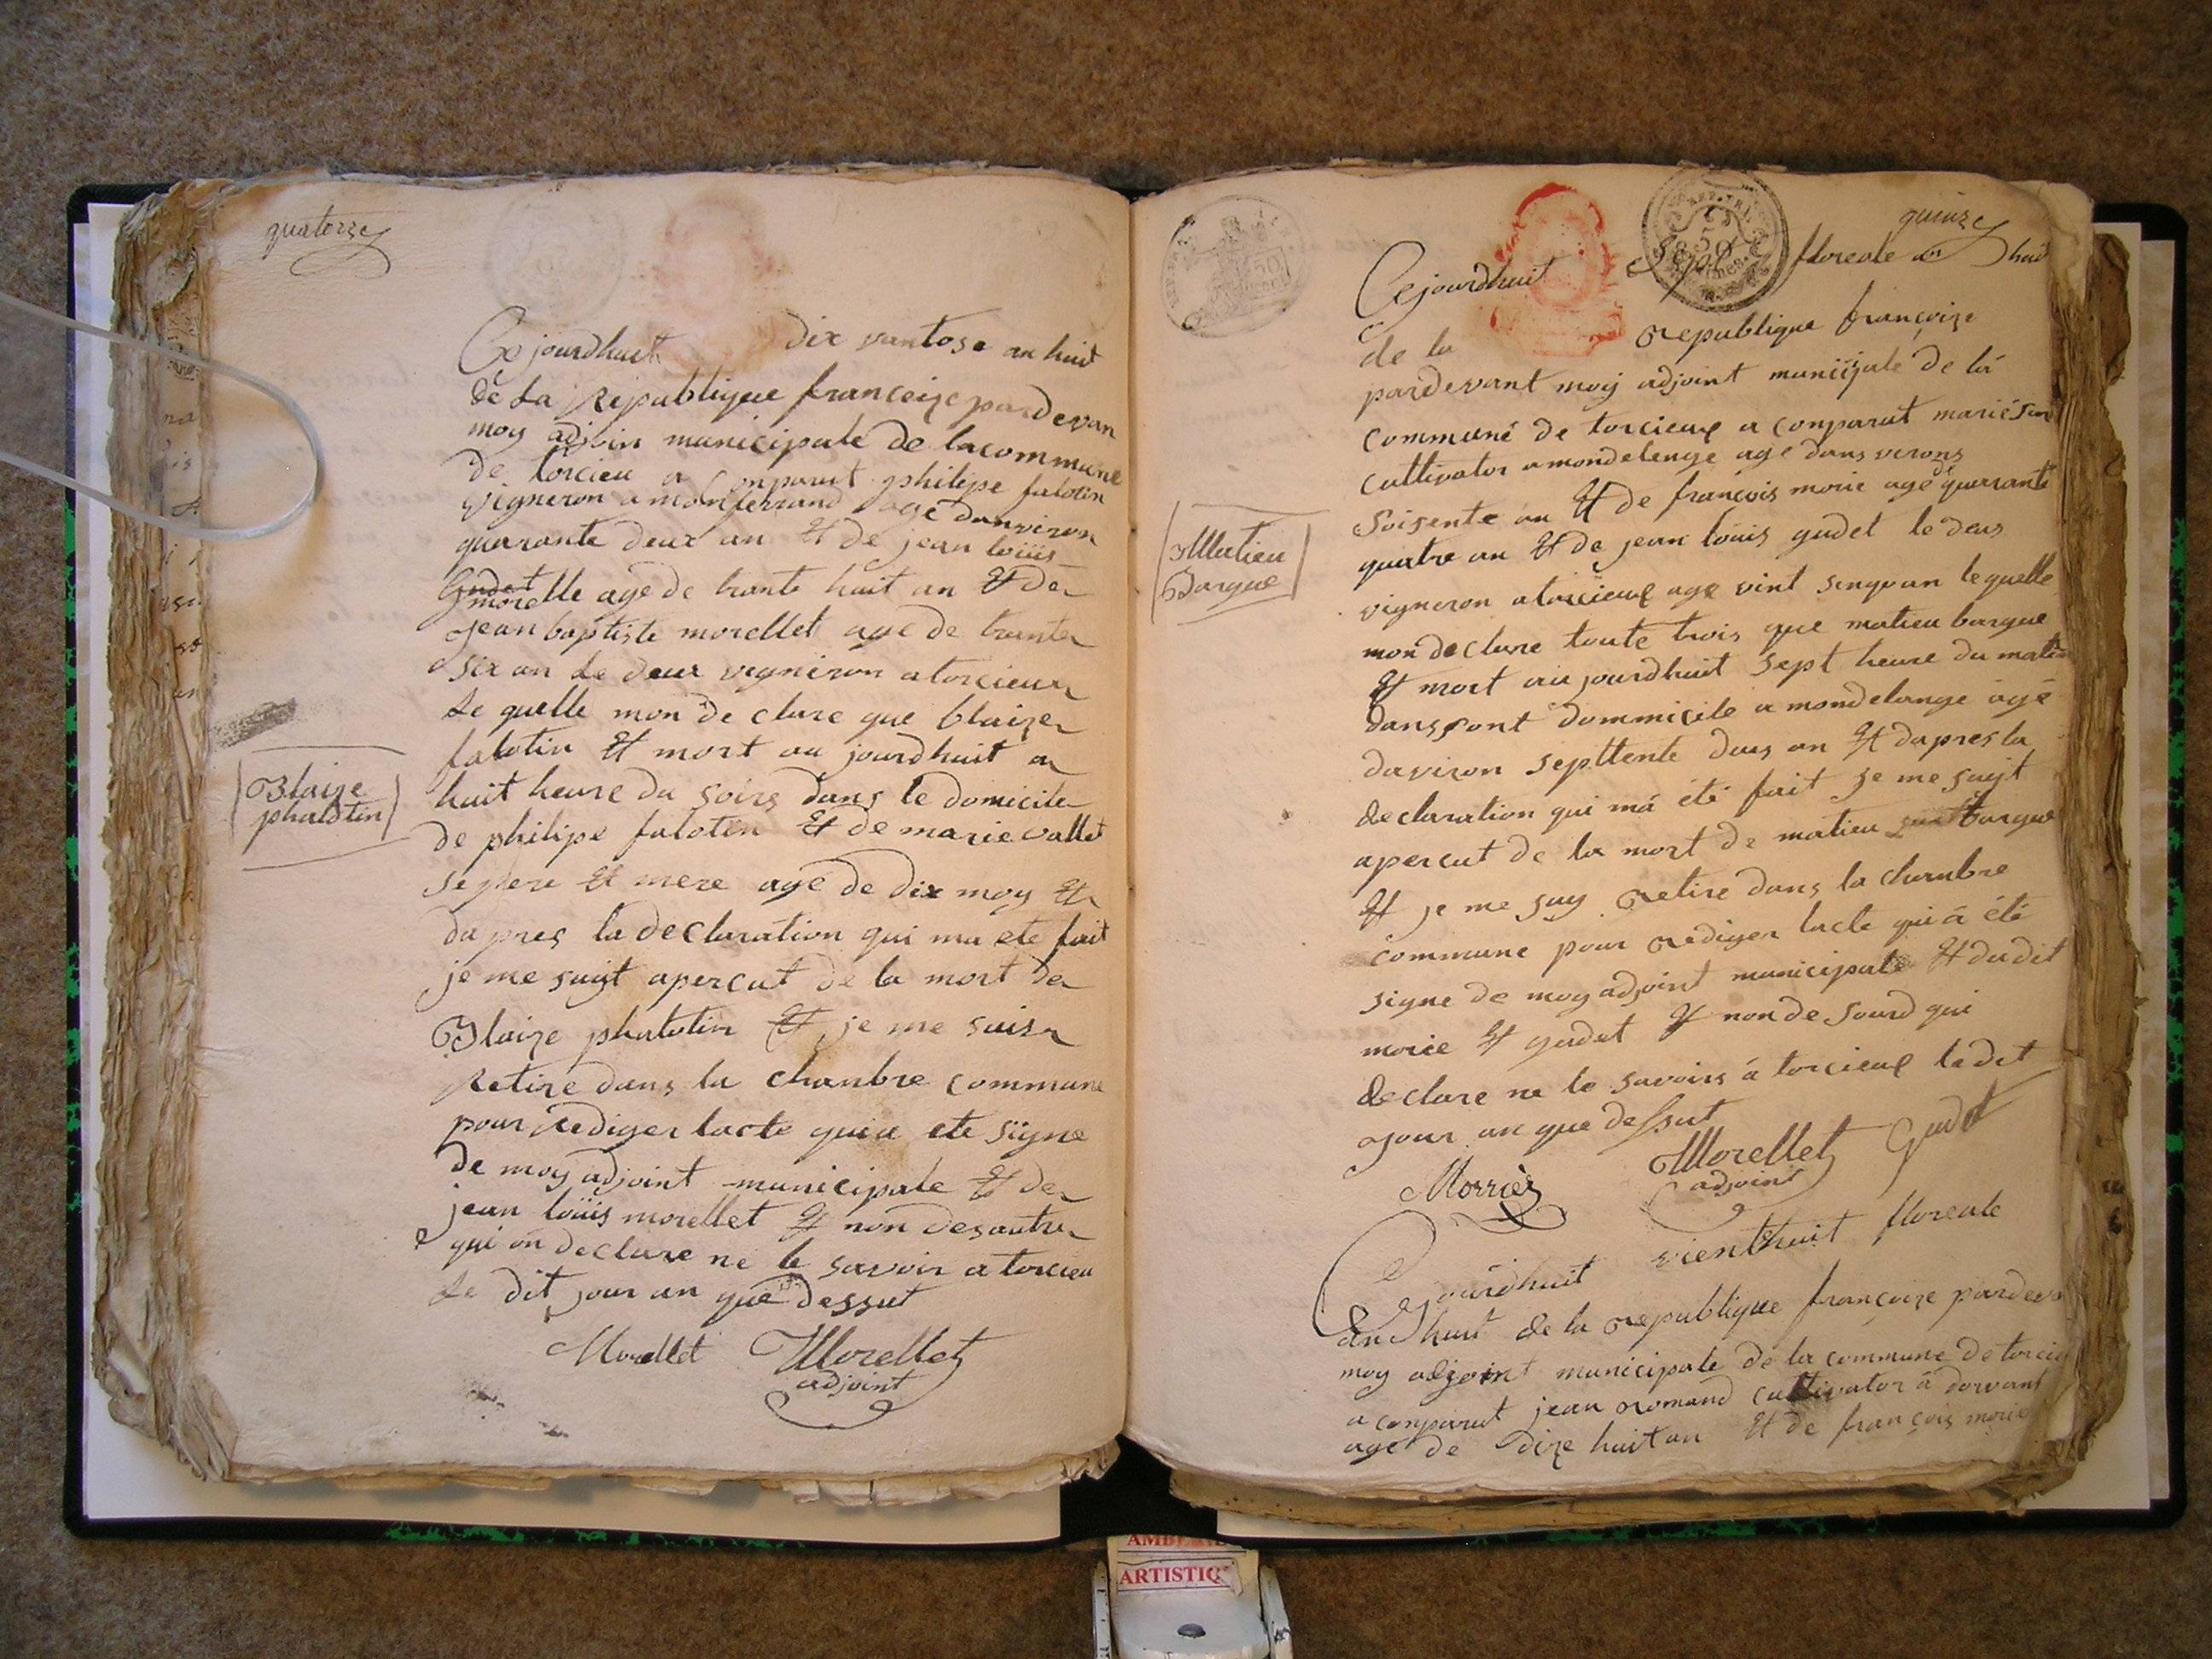 quatorze
Ce jourdhuit dix vantose an huit
de La Republique francoize pardevan
moy adjoin municipale de lacommune
de torcieu a conparut philipe falotin
vigneron a monferrand age danviron
quarante deux an Et de jean loüis
morelle age de trante huit an Et de
jean baptiste morellet age de trante
six an Le deux vigneron a torcieux
Le quelle mon de clare que blaize
falotin Et mort au jourdhuit a
huit heure du soire dans le domicile
de philipe falotin Et de marie vallet
se pere Et mere age de dix moy Et
da pres la declaration qui ma ete fait
je me suijt apercut de la mort de
Blaize phalotin Et je me suis
Retire dans la chanbre commune
pour Rediger lacte quia ete signe
de moy adjoint municipale Et de
jean loüis morellet Et non desautre
qui on declare ne le savoir a torcieu
Le dit jour an que dessut
Morellet Morellet
adjoint
Blaize
phalotin
quinze
Cejourdhuit Sept floreale an huit
de la republique françoize
pardevant moy adjoint municipale de la
commune de torcieux a conparut marie
cultivator a mondelenge age dans virons
soisente an Et de francois morie age de quarante
quatre an Et de jean loüis gudet le deus
vigneron a torcieux age vint sinquan lequelle
mon declare toute trois que matieu bargue
Et mort au jourdhuit sept heure du matin
dans sont dommicile a mondelange age
daviron septtente deus an Et dapres la
declaration qui ma été fait je me suijt
apercut de la mort de matieu bargue
Et je me suy retire dans la chanbre
commune pour rediger lacte qui a été
signe de moy adjoint municipale Et dudit
morie Et gudet Et non de sourd qui
declare ne le savoirs a torcieux ledit
jour an que dessut
Morriez Morellet Gudet
adjoint
Matieu
Bargue
Cejourdhuit vienthuit floreale
an huit de la republique françoize pardev
moy adjoint municipale de la commune de torcieu
a conparut jean romand cultivator á dorvant
age de dize huit an Et de françois morie
AMBER
ARTISTIQ